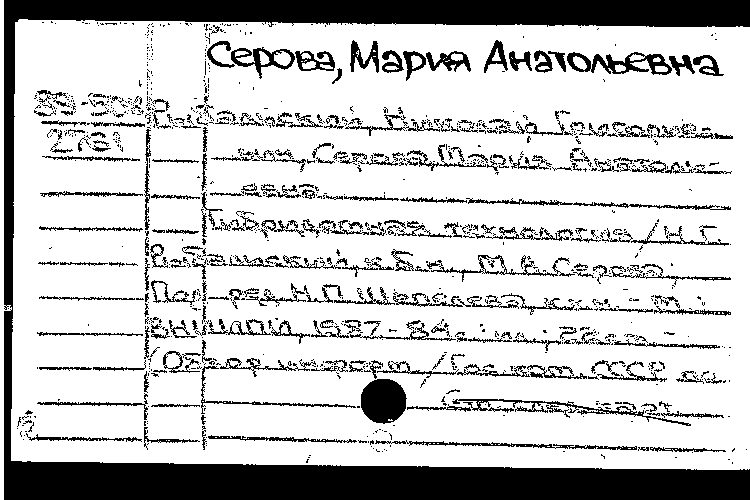 Серова, Мария Анатольевна
Рыбальский, Николай Григорье-
вич, Серова, Мария Анатоль-
евна.
Гибридомная технология / Н. Г.
Рыбальский, к.б.н., М. А. Серова;
Под ред. Н. П. Шепелева, к.х.н. - М.:
ВНИИПИ, 1987. - 84 с.: ил.; 22 см. -
(Обзор информ / Гос. ком. СССР по
См. след. карт.